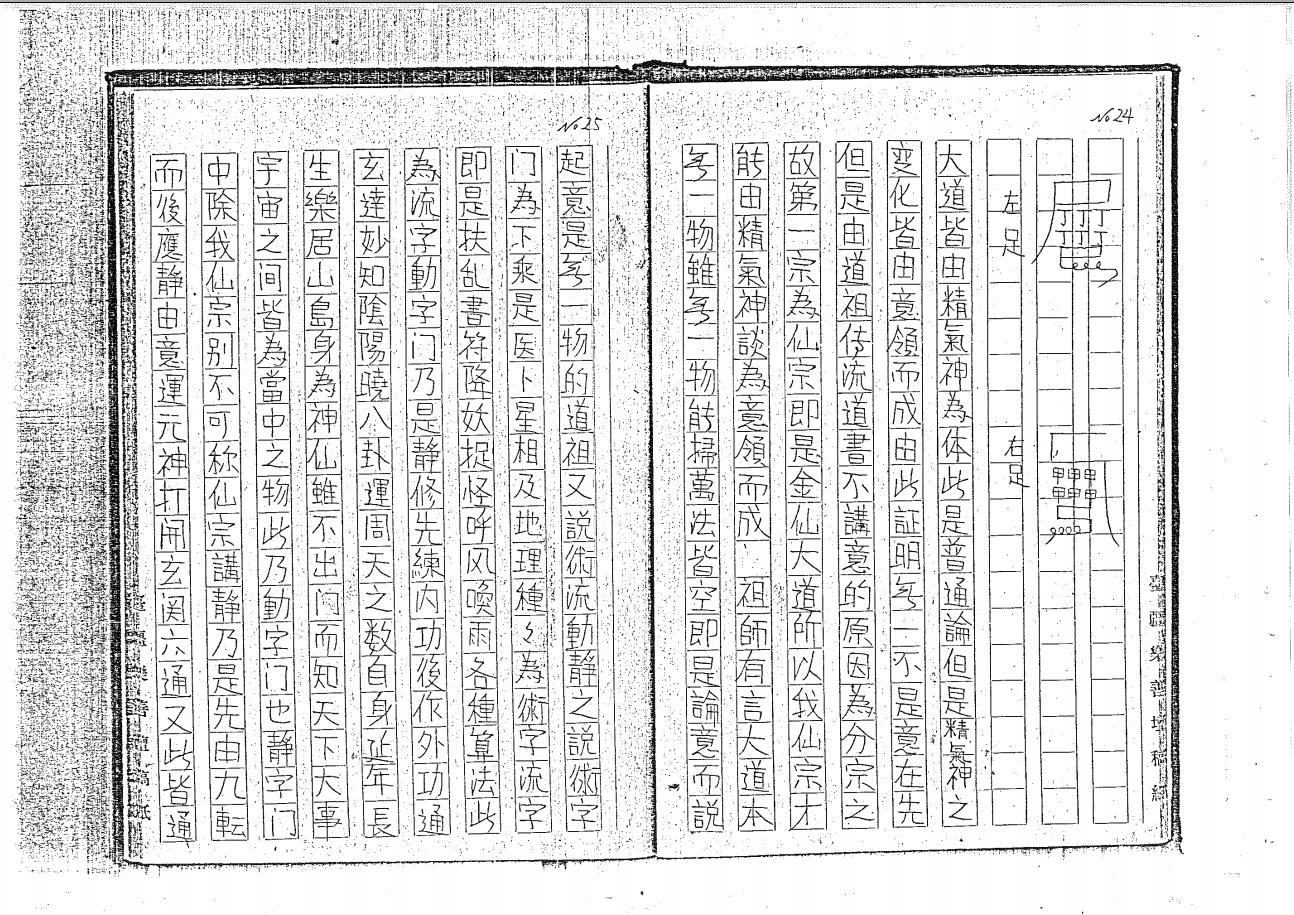 No 24
左足
右足
大道皆由精氣神為体此是普通論但是精氣神之
变化皆由意領而成由此証明每一不是意在先
但是由道祖传流道書不講意的原因為分宗之
故第一宗為仙宗即是金仙大道所以我仙宗才
能由精氣神談為意領而成、祖師有言大道本
每一物雖每一物能掃萬法皆空即是論意而説
臺疆樂善壇稿紙
No 25
起意是每一物的道祖又説術流動靜之説術字
门為下乘是医卜星相及地理種々為術字流字
即是扶乩書符降妖捉怪呼风喚雨各種算法此
為流字動字门乃是靜修先練内功後作外功通
玄達妙知陰陽曉八卦運周天之数自身延年長
生樂居山島身為神仙雖不出门而知天下大事
宇宙之间皆為當中之物此乃動字门也靜字门
中除我仙宗别不可称仙宗講靜乃是先由九転
而後應靜由意運元神打開玄関六通又此皆通
臺疆樂善壇稿紙